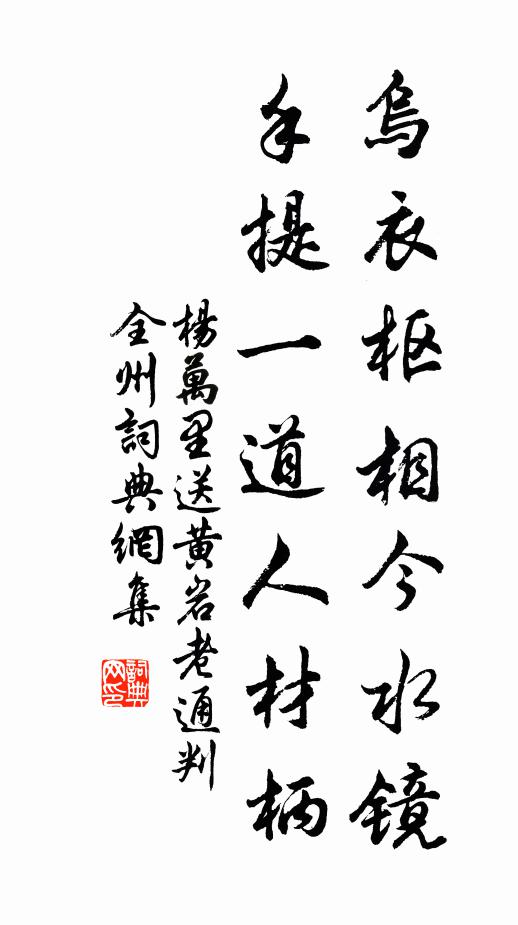 烏衣枢相今水鏡
手提一道人材柄
楊萬里送黄岩老通判
全州詞典網集
詞典网印